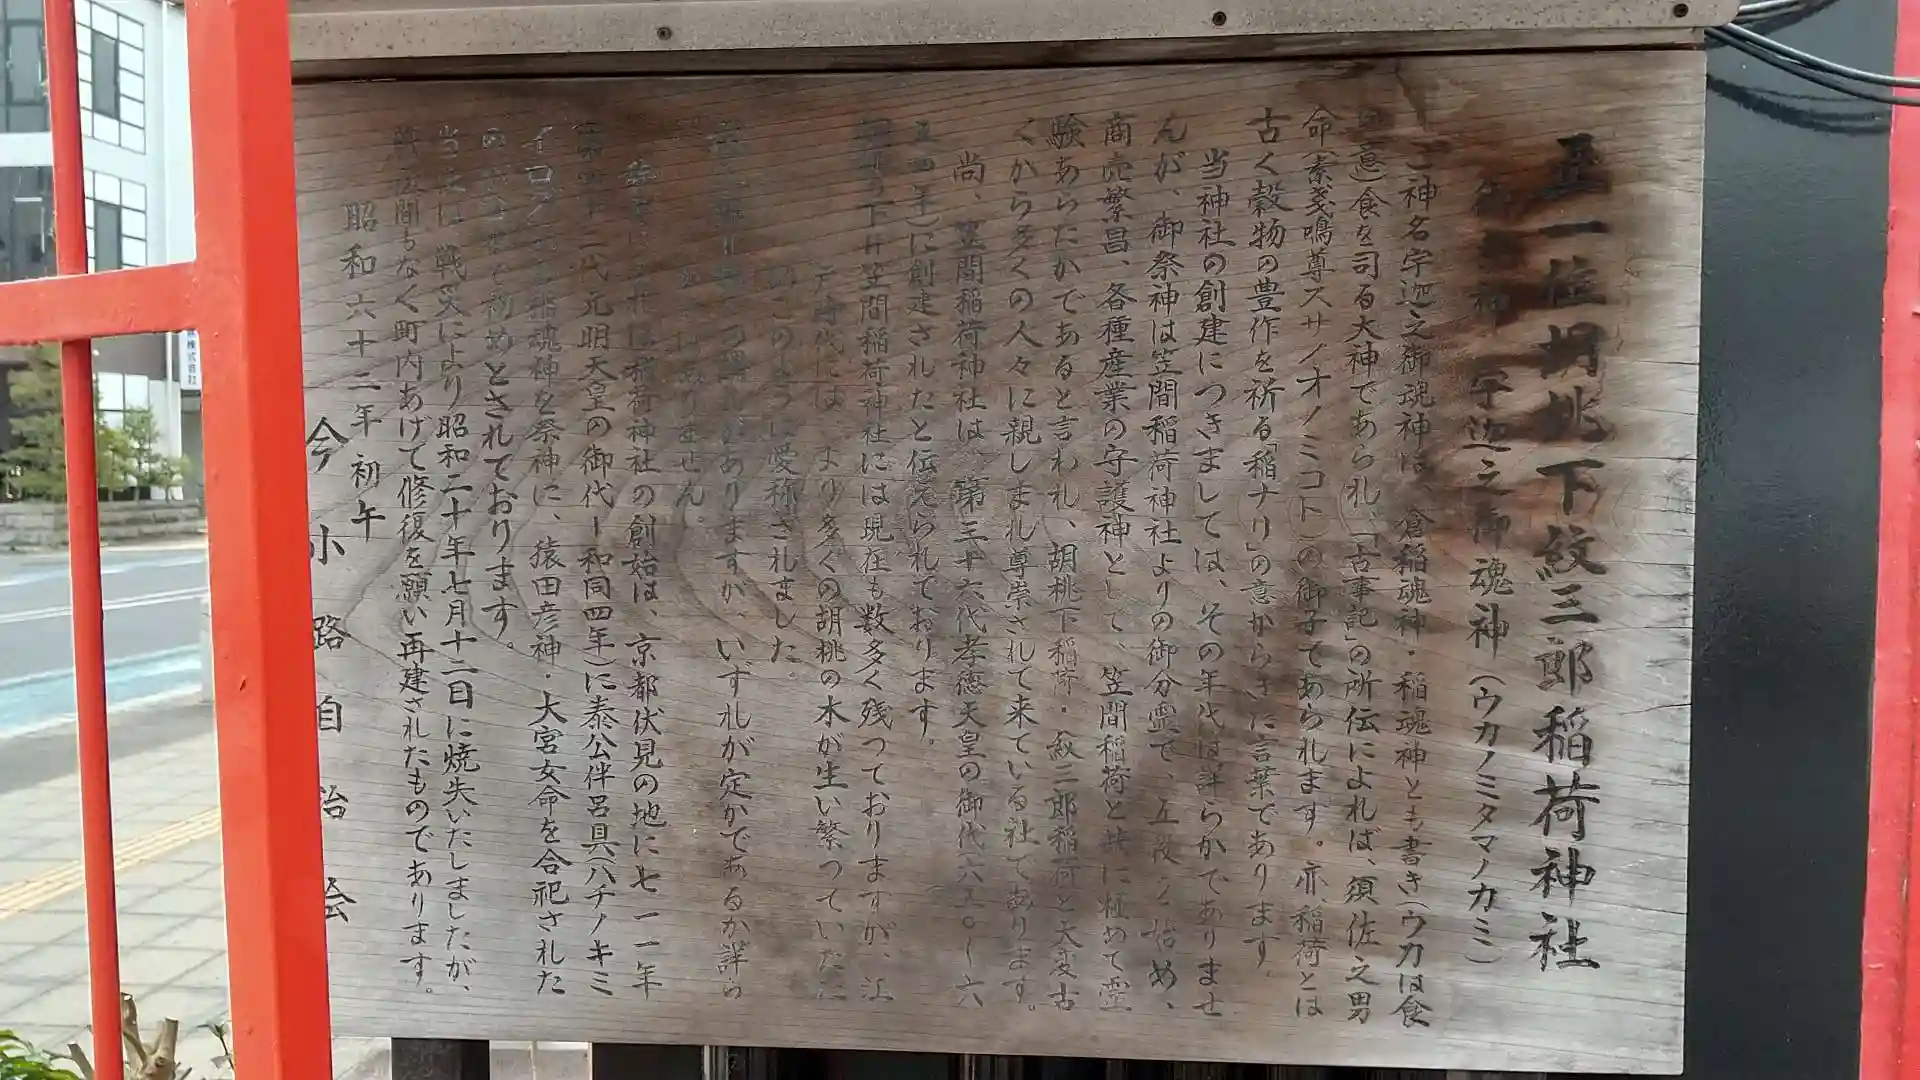 正一位胡桃下紋三郎稲荷神社
御祭神 宇迦之御魂神(ウカノミタマノカミ)
ご神名宇迦之御魂神は、倉稲魂神・稲魂神とも書き(ウカは食
の意)食を司る大神であられ、「古事記」の所伝によれば、須佐之男
命(素戔鳴尊スサノオノミコト)の御子であられます。亦、稲荷とは
古く穀物の豊作を祈る「稲ナリ」の意からきた言葉であります。
当神社の創建につきましては、その年代は詳らかでありませ
んが、御祭神は笠間稲荷神社よりの御分霊で、五穀を始め、
商売繁昌、各種産業の守護神として、笠間稲荷と共に極めて霊
験あらたかであると言われ、胡桃下稲荷・紋三郎稲荷と大変古
くから多くの人々に親しまれ尊崇されて来ている社であります。
尚、笠間稲荷神社は、第三十六代孝徳天皇の御代(六五〇ー六
五四年)に創建されたと伝えられております。
胡桃の下は笠間稲荷神社には現在も数多く残っておりますが、江
戸時代には、より多くの胡桃の木が生い繁っていたた
めこのように愛称されました。
ありますが、いずれが定かであるか詳ら
かではありません。
稲荷神社の創始は、京都伏見の地に七一一年
第四十三代元明天皇の御代ー和同四年)に秦公伴呂具(ハチノキミ
イログ 稲魂神を祭神に、猿田彦神・大宮女命を合祀された
初めとされております。
当社は戦災により昭和二十年七月十二日に焼失いたしましたが、
戦後間もなく町内あげて修復を願い再建されたものであります。
昭和六十二年初午
今小路自治会